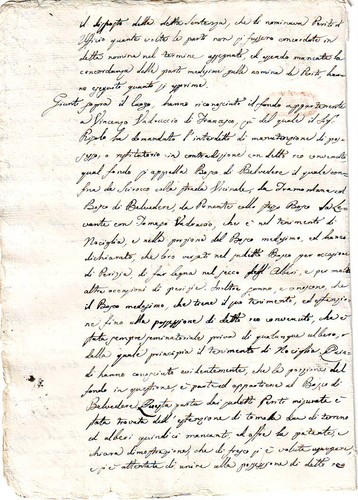 il disposto della detta Sentenza, che li nominava Periti d'
Uffizio quante volte le parti non si fossero concordate in
detta nomina nel termine assegnato, ed essendo mancata la
concordanza delle parti medesime sulla nomina de Periti, hanno
eseguito quanto si esprime.
Giunti sopra il luogo, hanno riconosciuto il fondo appartenente
a Vincenzo Vaduccio di Francesco, pel quale il Sig.
ha domandato l'interdetto di manutenzione di pos-
sesso, o restitutorio in contradizione con detto reo convenuto
qual fondo si appella Bosco di Belvedere il quale con-
fina da Scirocco colla strada Vicinale, da Tramontana col
Bosco di Belvedere, da Ponente collo stesso Bosco Le-
vante con Tomaso Vaduccio, che è nel tenimento di
Nociglia, e nella porzione del Bosco medesimo, ed hanno
dichiarato, che loro usati nel suddetto Bosco per occasione
di Perizia, di far legna nel secco degli Alberi, e per molte
altre occasioni di perizie. Inoltre sanno, e conoscono, che
il Bosco medesimo, che tiene il suo tenimento, ed estenzio-
ne fino alla possessione di detto reo convenuto, che è
stata sempre seminatoriale priva di qualunque albero, e
dalla quale principia il tenimento di Nociglia.
di hanno conosciuto evidentemente, che la porzione del
fondo in questione, è parte ed appartiene al Bosco di
Belvedere. Questa parte dai suddetti Periti misurata è
stata trovata dell'estenzione di tomola due di terreno
ed alberi quindici mancanti, ed offre la patente, e
chiara dimostrazione, che di fresco si è voluta usurpare
e si è attentato di unire alla possessione di detto re